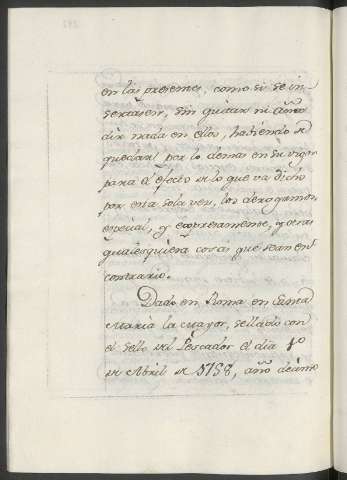 en las presentes, como si se in
sertasen, sin quitar ni aña
dir nada en ellos, habiendo de
quedar por lo demas en su vigor
para el efecto de lo que va dicho
por esta sola vez, los derogamos
especial, y expresamente, y otras
qualesquiera cosas que sean en
contrario.
Dado en Roma en Santa
Maria la Mayor, sellado con
el sello del Pescador el dia 10
de Abril de 1758, año decimo